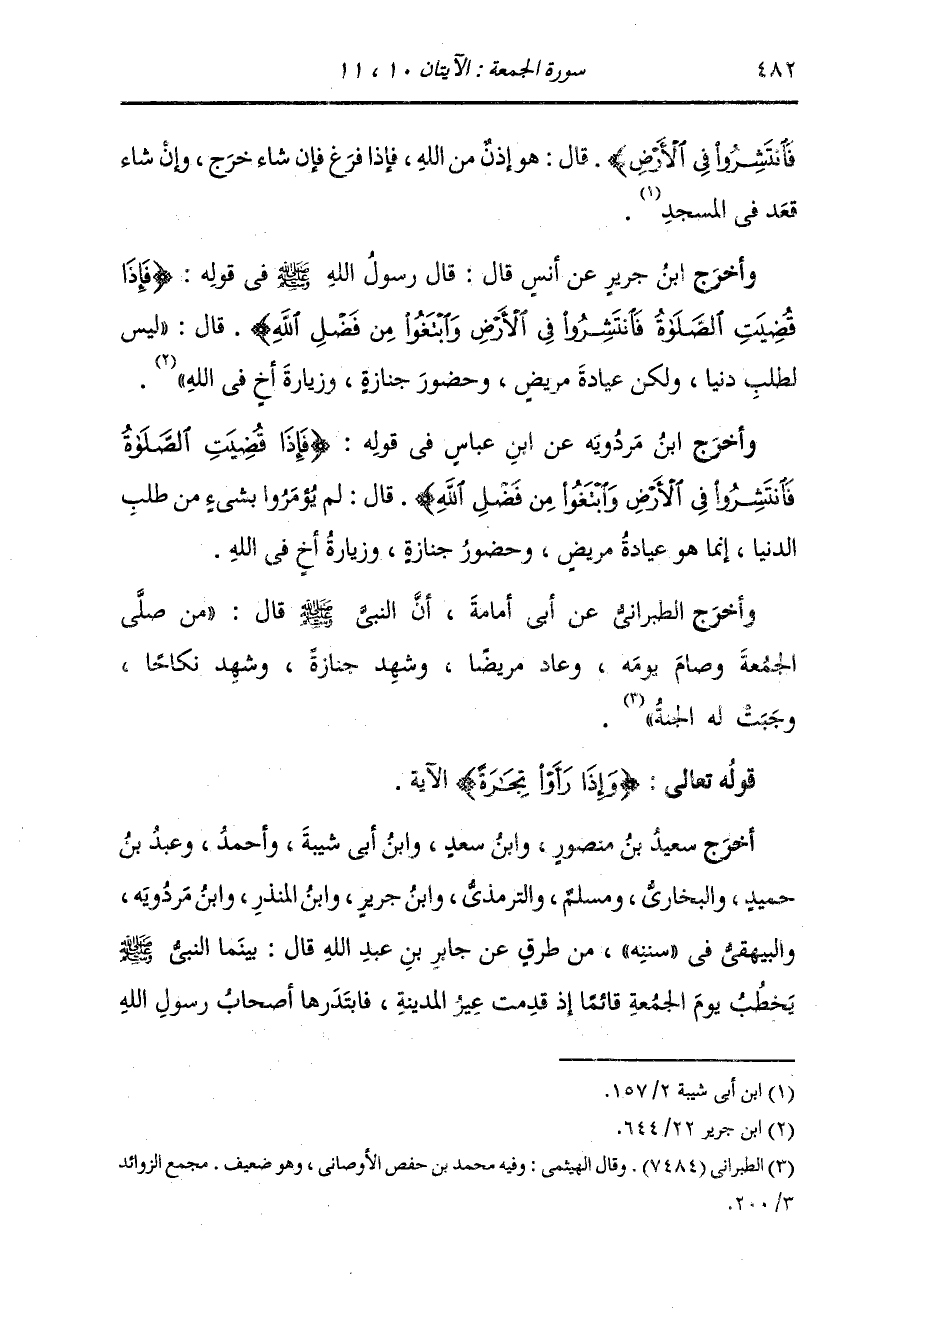 ٤٨٢ سورة الجمعة : الآيتان ١٠ ، ١١
فَٱنتَشِرُواْ فِي ٱلْأَرْضِ﴾ . قال : هو إذنٌ من اللهِ ، فإذا فرَغ فإن شاء خرَج ، وإنْ شاء
قعَد فى المسجدِ(١) .
وأخرَج ابنُ جريرٍ عن أنسٍ قال : قال رسولُ اللهِ ﷺ فى قولِه : ﴿فَإِذَا
قُضِيَتِ ٱلصَّلَوٰةُ فَٱنتَشِرُواْ فِي ٱلْأَرْضِ وَٱبْتَغُواْ مِن فَضْلِ ٱللَّهِ﴾ . قال : «ليس
لطلبِ دنيا ، ولكن عيادةَ مريضٍ ، وحضورَ جنازةٍ ، وزيارةَ أخٍ فى اللهِ»(٢) .
وأخرَج ابنُ مَردُويَه عن ابنِ عباسٍ فى قولِه : ﴿فَإِذَا قُضِيَتِ ٱلصَّلَوٰةُ
فَٱنتَشِرُواْ فِي ٱلْأَرْضِ وَٱبْتَغُواْ مِن فَضْلِ ٱللَّهِ﴾ . قال : لم يُؤمَرُوا بشىءٍ من طلبِ
الدنيا ، إنما هو عيادةُ مريضٍ ، وحضورُ جنازةٍ ، وزيارةُ أخٍ فى اللهِ .
وأخرَج الطبرانىُّ عن أبى أمامةَ ، أنَّ النبىَّ ﷺ قال : «من صلَّى
الجمُعةَ وصامَ يومَه ، وعاد مريضًا ، وشهِد جنازةً ، وشهِد نكاحًا ،
وجَبَتْ له الجنةُ»(٣) .
قولُه تعالى : ﴿وَإِذَا رَأَوْاْ تِجَـٰرَةً﴾ الآية .
أخرَج سعيدُ بنُ منصورٍ ، وابنُ سعدٍ ، وابنُ أبى شيبةَ ، وأحمدُ ، وعبدُ بنُ
حميدٍ ، والبخارىُّ ، ومسلمٌ ، والترمذىُّ ، وابنُ جريرٍ ، وابنُ المنذرِ ، وابنُ مَردُويَه ،
والبيهقىُّ فى «سننِه» ، من طرقٍ عن جابرِ بنِ عبدِ اللهِ قال : بينَما النبىُّ ﷺ
يَخطُبُ يومَ الجمُعةِ قائمًا إذ قدِمت عِيرُ المدينةِ ، فابتَدَرها أصحابُ رسولِ اللهِ
(١) ابن أبى شيبة ٢/ ١٥٧.
(٢) ابن جرير ٢٢/ ٦٤٤.
(٣) الطبرانى (٧٤٨٤) . وقال الهيثمى : وفيه محمد بن حفص الأوصانى ، وهو ضعيف . مجمع الزوائد
٣/ ٢٠٠.